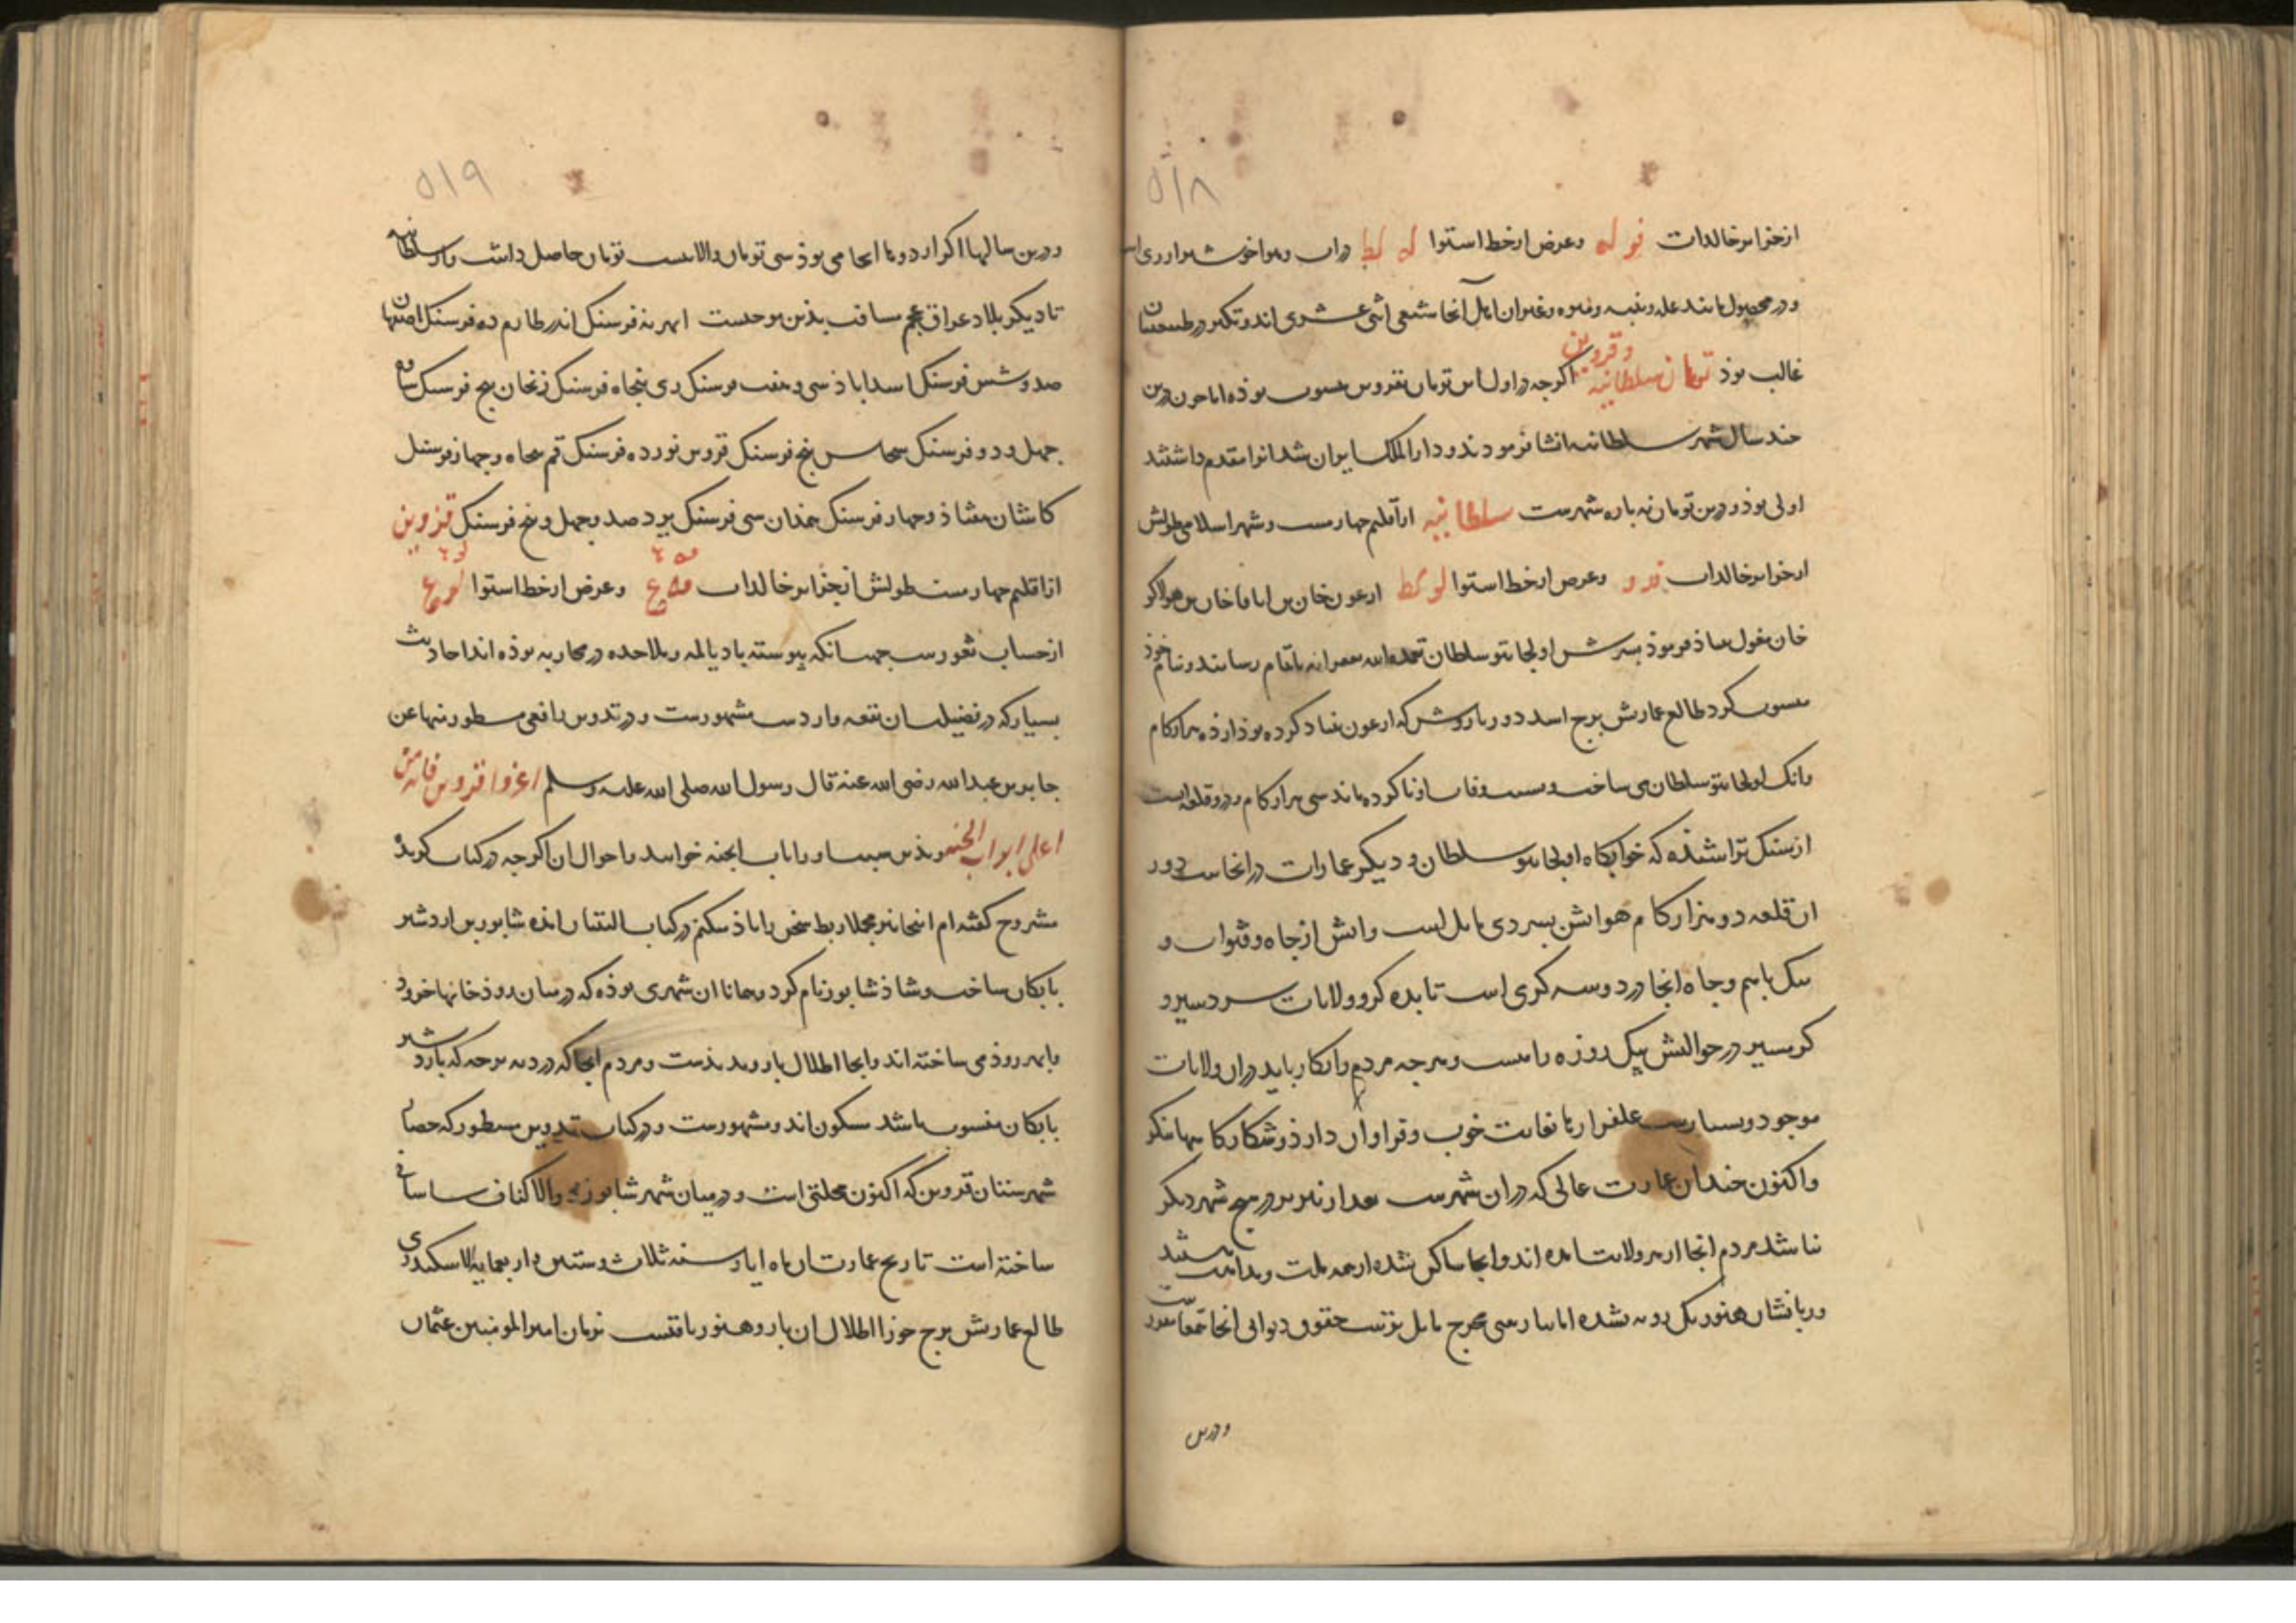 ۵۱۸
از جزایر خالدات فو له وعرض از خط استوا له لط در آب وهوا خوشتر از ری است
ودر محصول مانند غله وپنبه ومیوه وغیر آن اهل آنجا شیعی اثنی عشری اند وتکبر در طبیعتشان
غالب بود تومان سلطانیه وقزوین اگرچه در اول این تومان بقزوین منسوب بوذه اما چون درین
چند سال شهر سلطانیه انشا فرمودند ودار الملک ایران شد انرا مقدم داشتند
اولی بوذ ودرین تومان نه پاره شهرست سلطانیه از اقلیم چهارمست وشهر اسلامی طولش
از جزایر خالدات فد و وعرض از خط استوا لو لط ارغون خان بن اباقا خان بن هولاکو
خان مغول بنیاذ فرموذ پسرش اولجایتو سلطان تغمده الله بغفرانه باتمام رسانید وبنام خوذ
منسوب کرد طالع عمارتش برج اسد دور باروش که ارغون بنیاد کرده بوذ دوازده هزار کام
وانک اولجایتو سلطان می ساخت وبسبب وفات او ناکرده ماند سی هزار کام ودرو قلعه ایست
از سنک تراشیده که خوابکاه اولجایتو سلطان ودیکر عمارات در انجاست ودور
ان قلعه دو هزار کام هواش بسردی مایلست وآبش از چاه وقنوات و
نیک هاضم وچاه انجا در دو سه کزی است تا بده کز وولایات سردسیر و
کرمسیر در حوالیش بیک روزه راهست وهرچه مردم را بکار باید در ان ولایات
موجود وبسیارست علفزارها بغایت خوب وفراوان دارد وشکارکاههای نیکو
واکنون چندان عمارت عالی که در ان شهرست بعد از تبریز در هیچ شهر دیکر
نباشد مردم انجا از هر ولایت امده اند وانجا ساکن شده از همه ملت ومذاهب هستند
وزبانشان هنوز یک رویه نشده اما بپارسی ممزوج مایل ترست حقوق دیوانی انجا بتمغا مقررست
ودرین
۵۱۹
ودرین سالها اکر اردوها انجا می بوذ سی تومان والا بیست تومان حاصل داشت واز سلطانیه
تا دیکر بلاد عراق عجم مسافت بذین موجبست ابهر نه فرسنک اندر طارم ده فرسنک اصفهان
صد وشش فرسنک اسداباذ سی وهفت فرسنک ری پنجاه فرسنک زنجان پنج فرسنک ساوه
چهل ودو فرسنک سجاس پنج فرسنک قزوین نوزده فرسنک قم پنجاه وچهار فرسنک
کاشان هشتاذ وچهار فرسنک همدان سی فرسنک یزد صد وچهل وپنج فرسنک قزوین
از اقلیم چهارمست طولش از جزایر خالدات وعرض از خط استوا
از حساب ثغورست جهت انکه پیوسته با دیالمه وملاحده در محاربه بوذه اند احادیث
بسیار که در فضیلت ان بقعه واردست مشهورست ودر تدوین رافعی مسطور منها عن
جابر بن عبدالله رضی الله عنه قال رسول الله صلی الله علیه وسلم اغزوا قزوین فانه من
اعلی ابواب الجنة وبذین سبب اورا باب الجنه خوانند واحوال ان اکرچه در کتاب کزیذه
مشروح کفته ام انجا نیز مجملا ربط سخن را یاذ میکنم در کتاب التبیان امده شابور بن اردشیر
بابکان ساخت وشاذ شابور نام کرد وهمانا ان شهری بوذه که در میان روذخانهاء خررود
وابهر روذ می ساخته اند وانجا اطلال بارو پدیدست ومردم انجا که در دیه نرجه که باردشیر
بابکان منسوب باشد مسکون اند ومشهورست ودر کتاب تدوین مسطور که حصار
شهرستان قزوین که اکنون محلتی است ودر میان شهر شابور ذو الاکتاف ساسانی
ساخته است تاریخ عمارت ان ماه ایار سنه ثلاث وستین واربعمایة الاسکندری
طالع عمارتش برج جوزا اطلال ان بارو هنوز باقیست بزمان امیر المومنین عثمان